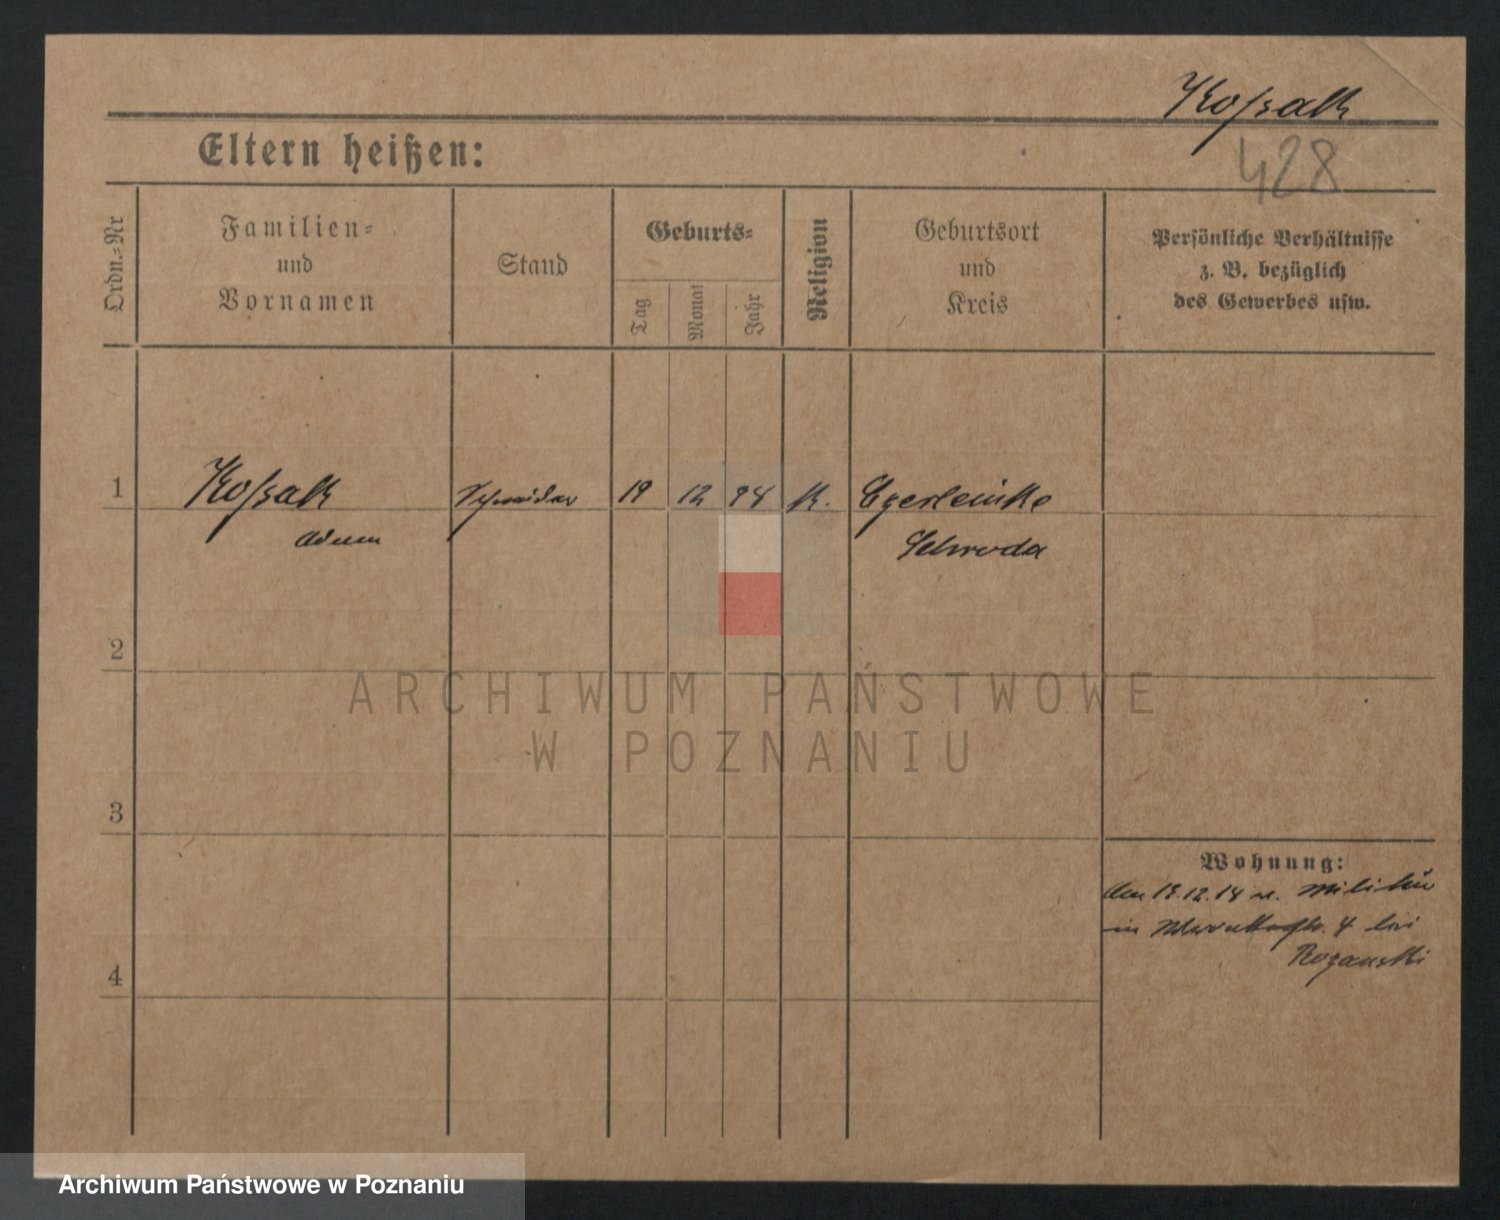 Koßak
428
Eltern heißen:
Ordn.=Nr
Familien=
und
Vornamen
Stand
Geburts=
Tag
Monat
Jahr
Religion
Geburtsort
und
Kreis
Persönliche Verhältnisse
z. B. bezüglich
des Gewerbes usw.
1
Koßak
Adam
Schneider
19
12
94
K.
Schroda
2
ARCHIWUM PAŃSTWOWE
W POZNANIU
3
Wohnung:
Militär
in 4 bei
Rozanski
4
Archiwum Państwowe w Poznaniu